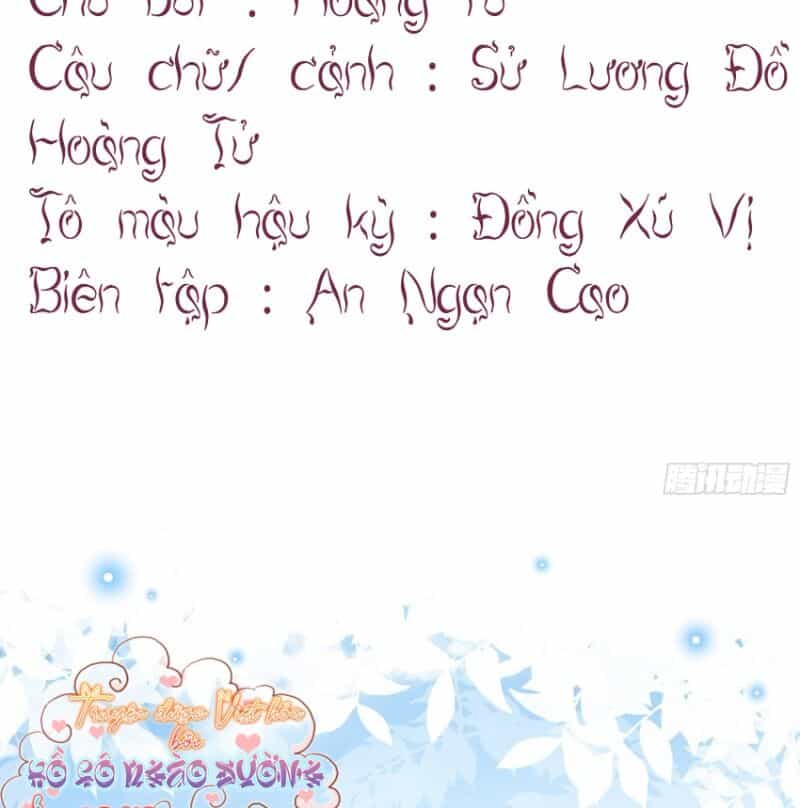 Câu chữ/ cảnh : Sử Lương Đồ
Hoàng Tử
Tô màu hậu kỳ : Đồng Xú Vị
Biên tập : An Ngạn Cao
腾讯动漫
Truyện được Việt hóa
bởi
HỒ LÔ NGÀO ĐƯỜNG